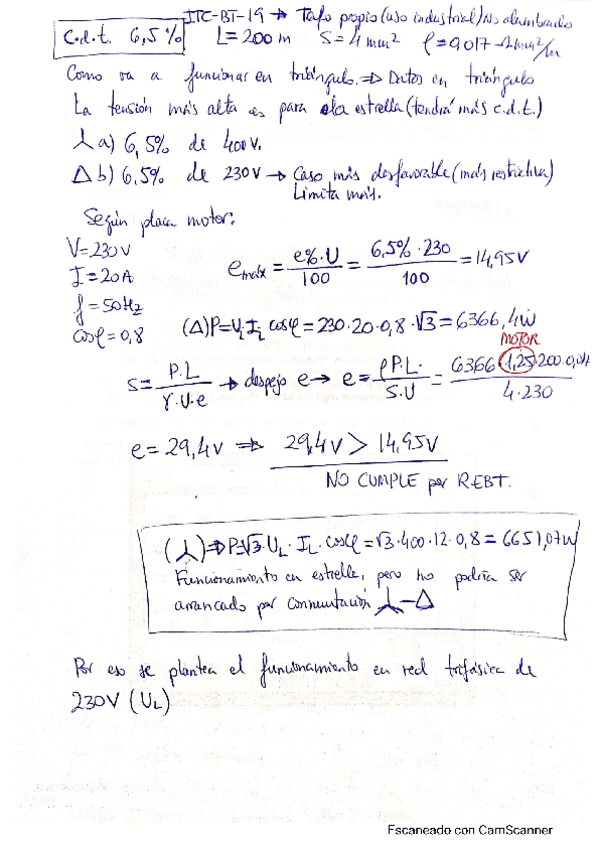 ITC-BT-19 → Trafo propio (uso industrial) No alumbrado
c.d.t. 6,5% L=200m S=4mm² ρ=0,017 Ωmm²/m
Como va a funcionar en triángulo. ⇒ Datos en triángulo
La tensión más alta es para la estrella (tendrá más c.d.t.)
⅄ a) 6,5% de 400V.
Δ b) 6.5% de 230V → Caso más desfavorable (más restrictiva)
Limita más.
Según placa motor:
V=230V
I=20A
f=50Hz
cosφ=0,8
emáx = e%·U/100 = 6,5%·230/100 = 14,95V
(Δ)P=U_L I_L cosφ = 230·20·0,8·√3 = 6366,4W
MOTOR
S = P.L/γ.U.e → despejo e → e = ρP.L./S.U = 6366·1,25·200·0,01/4·230
e = 29,4V ⇒ 29,4V > 14,95V
NO CUMPLE por REBT.
(⅄)⇒P=√3·U_L·I_L·cosφ = √3·400·12·0,8 = 6651,07W
Funcionamiento en estrella, pero no podría ser
arrancado por conmutación ⅄-Δ
Por eso se plantea el funcionamiento en red trifásica de
230V (U_L)
Escaneado con CamScanner